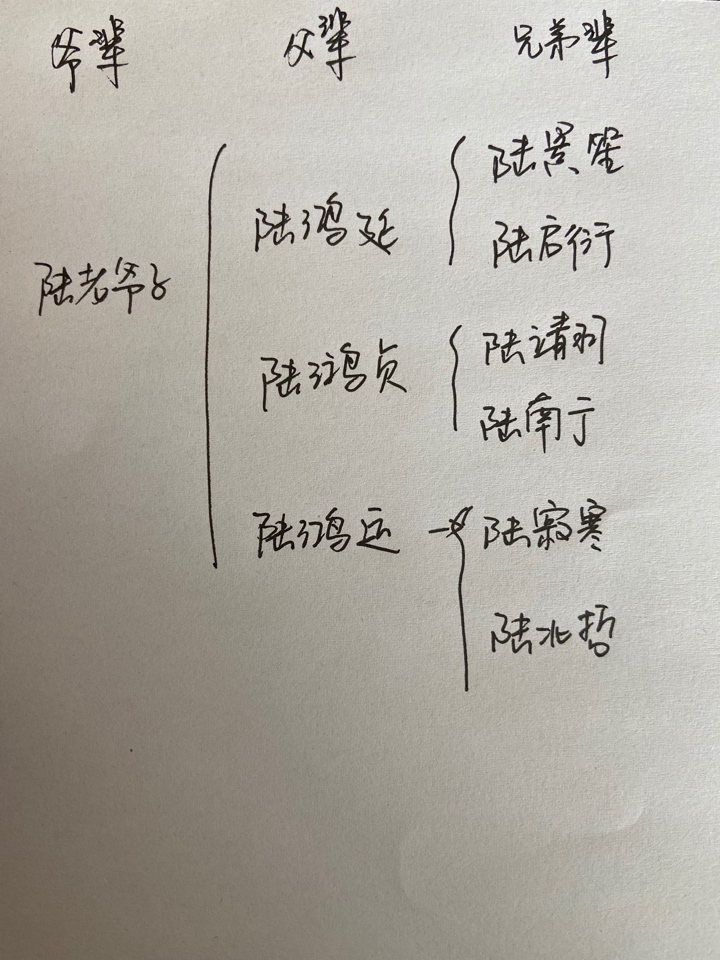 爷辈 父辈 兄弟辈
陆景笙
陆鸿延
陆启衍
陆老爷子
陆靖羽
陆鸿贞
陆南宁
陆鸿运 陆寂寒
陆北哲